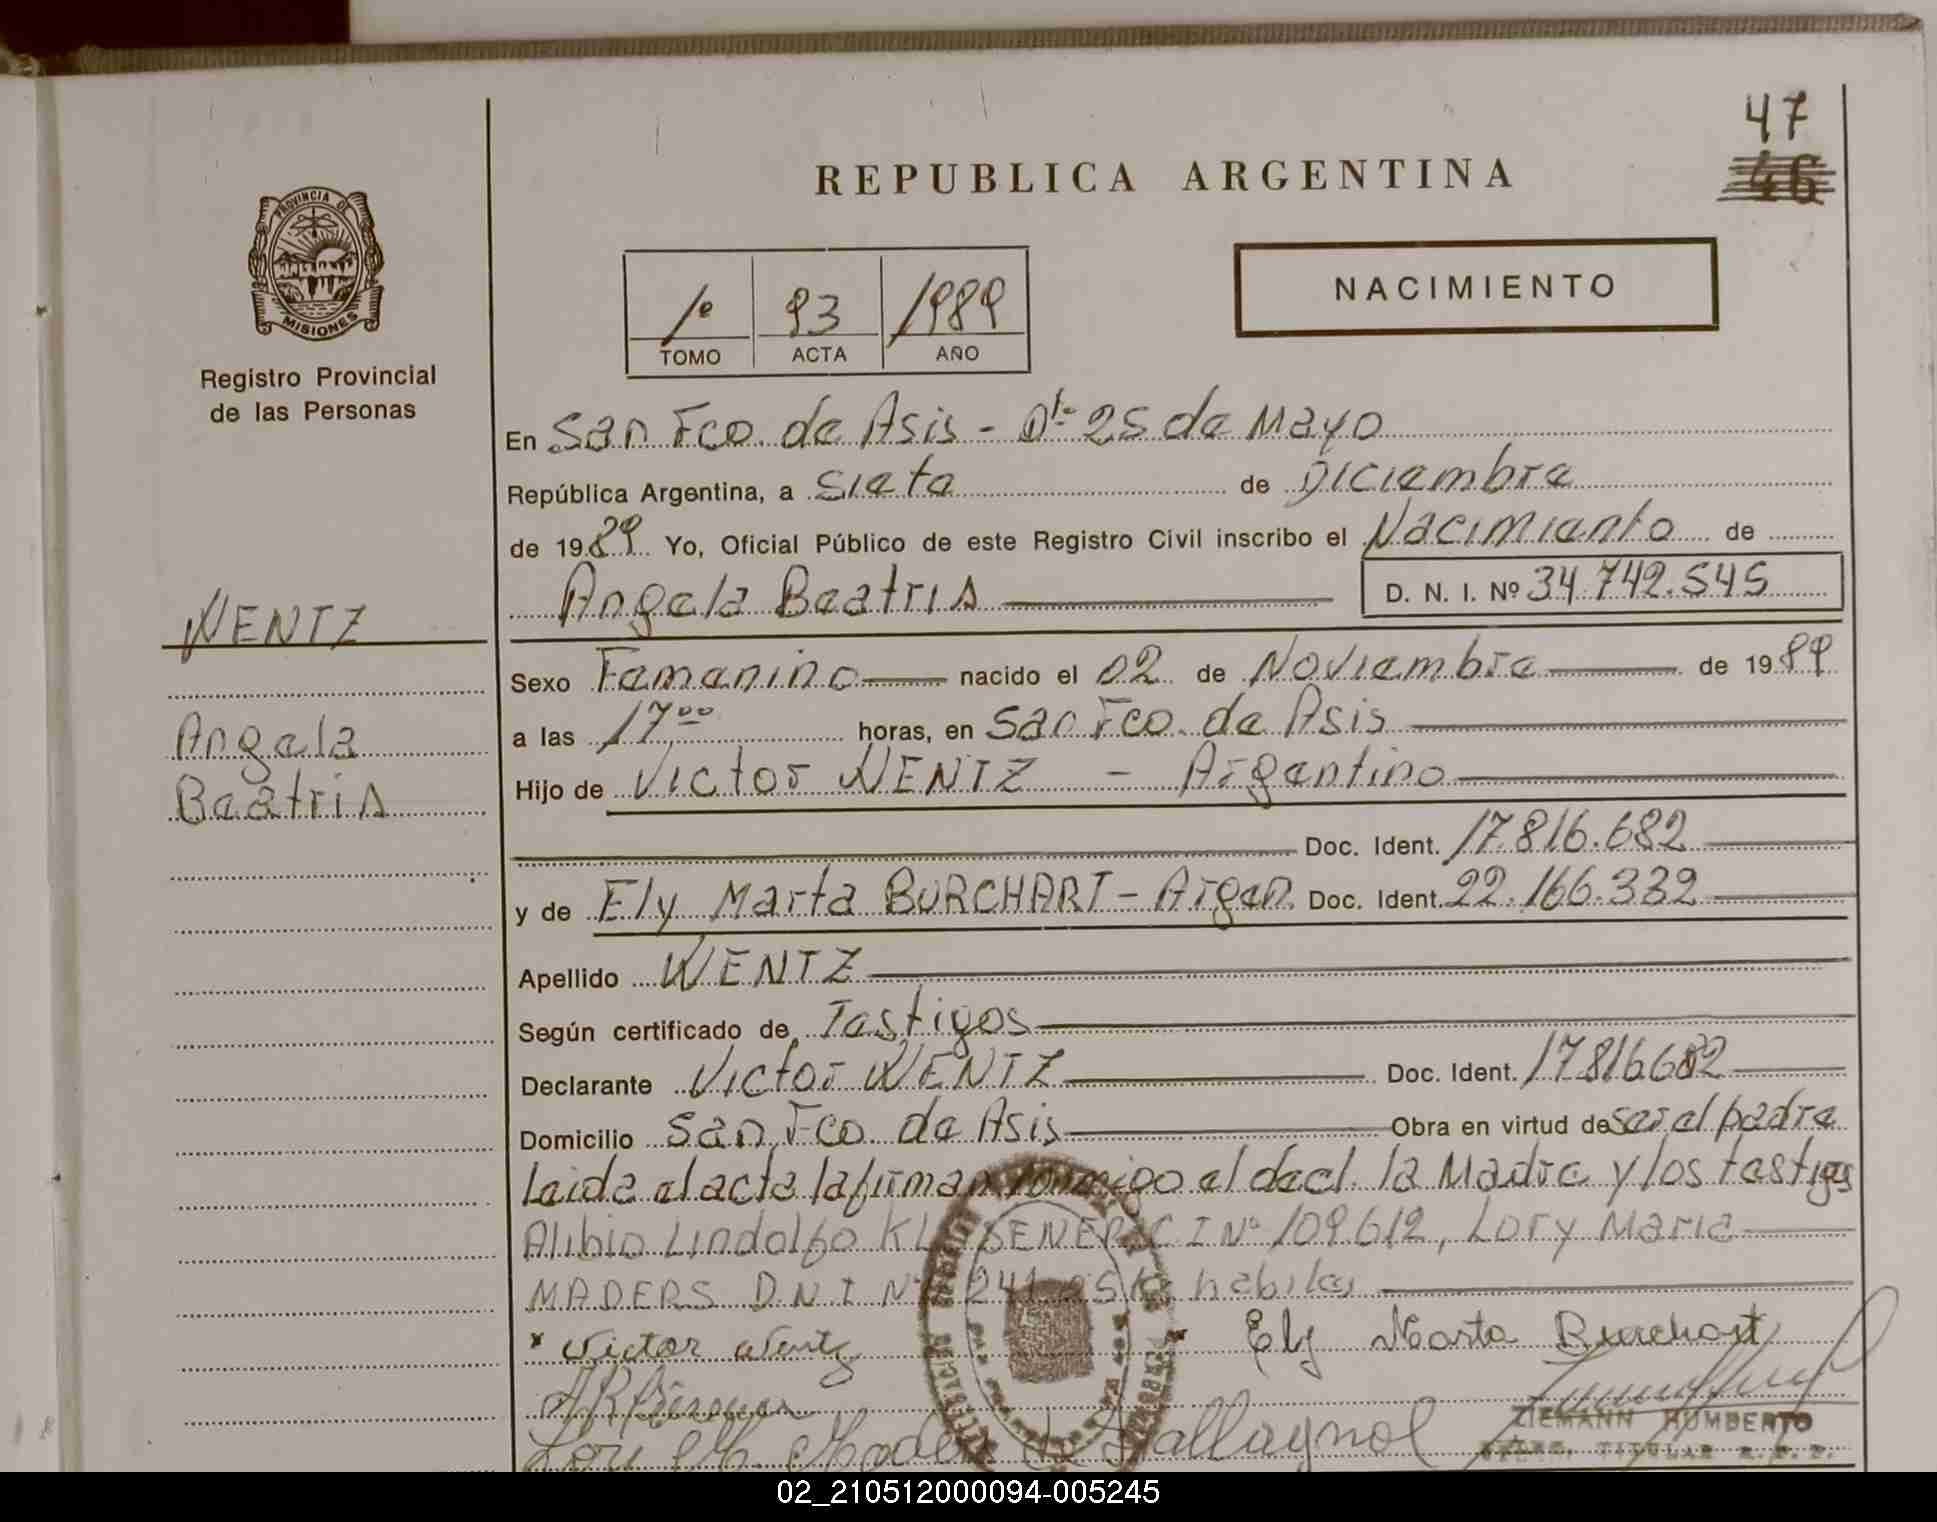 47
46
REPUBLICA ARGENTINA
PROVINCIA DE
MISIONES
Registro Provincial
de las Personas
1º 93 1989
TOMO ACTA AÑO
NACIMIENTO
En San Fco. de Asis - Dto 25 de Mayo
República Argentina, a Siete de Diciembre
de 1989 Yo, Oficial Público de este Registro Civil inscribo el Nacimiento de
Angela Beatris D. N. I. Nº 34.742.545
WENTZ
Sexo Femenino nacido el 02 de Noviembre de 1989
Angela
a las 17 00 horas, en San Fco. de Asis
Beatris
Hijo de Victor WENTZ - Argentino
Doc. Ident. 17.816.682
y de Ely Marta BURCHART - Argen. Doc. Ident. 22.166.332
Apellido WENTZ
Según certificado de Testigos
Declarante Victor WENTZ Doc. Ident. 17816682
Domicilio San Fco. de Asis Obra en virtud de ser el padre
Leida el acta la firman conmigo el decl. la Madre y los testigos
Alibio Lindolfo C I Nº 109.612, Lory Maria
MADERS D.N I Nº habiles
x Victor Wentz x Ely Marta Burchart
Dallagnol
ZIEMANN HUMBERTO
TITULAR R.P.P.
02_210512000094-005245